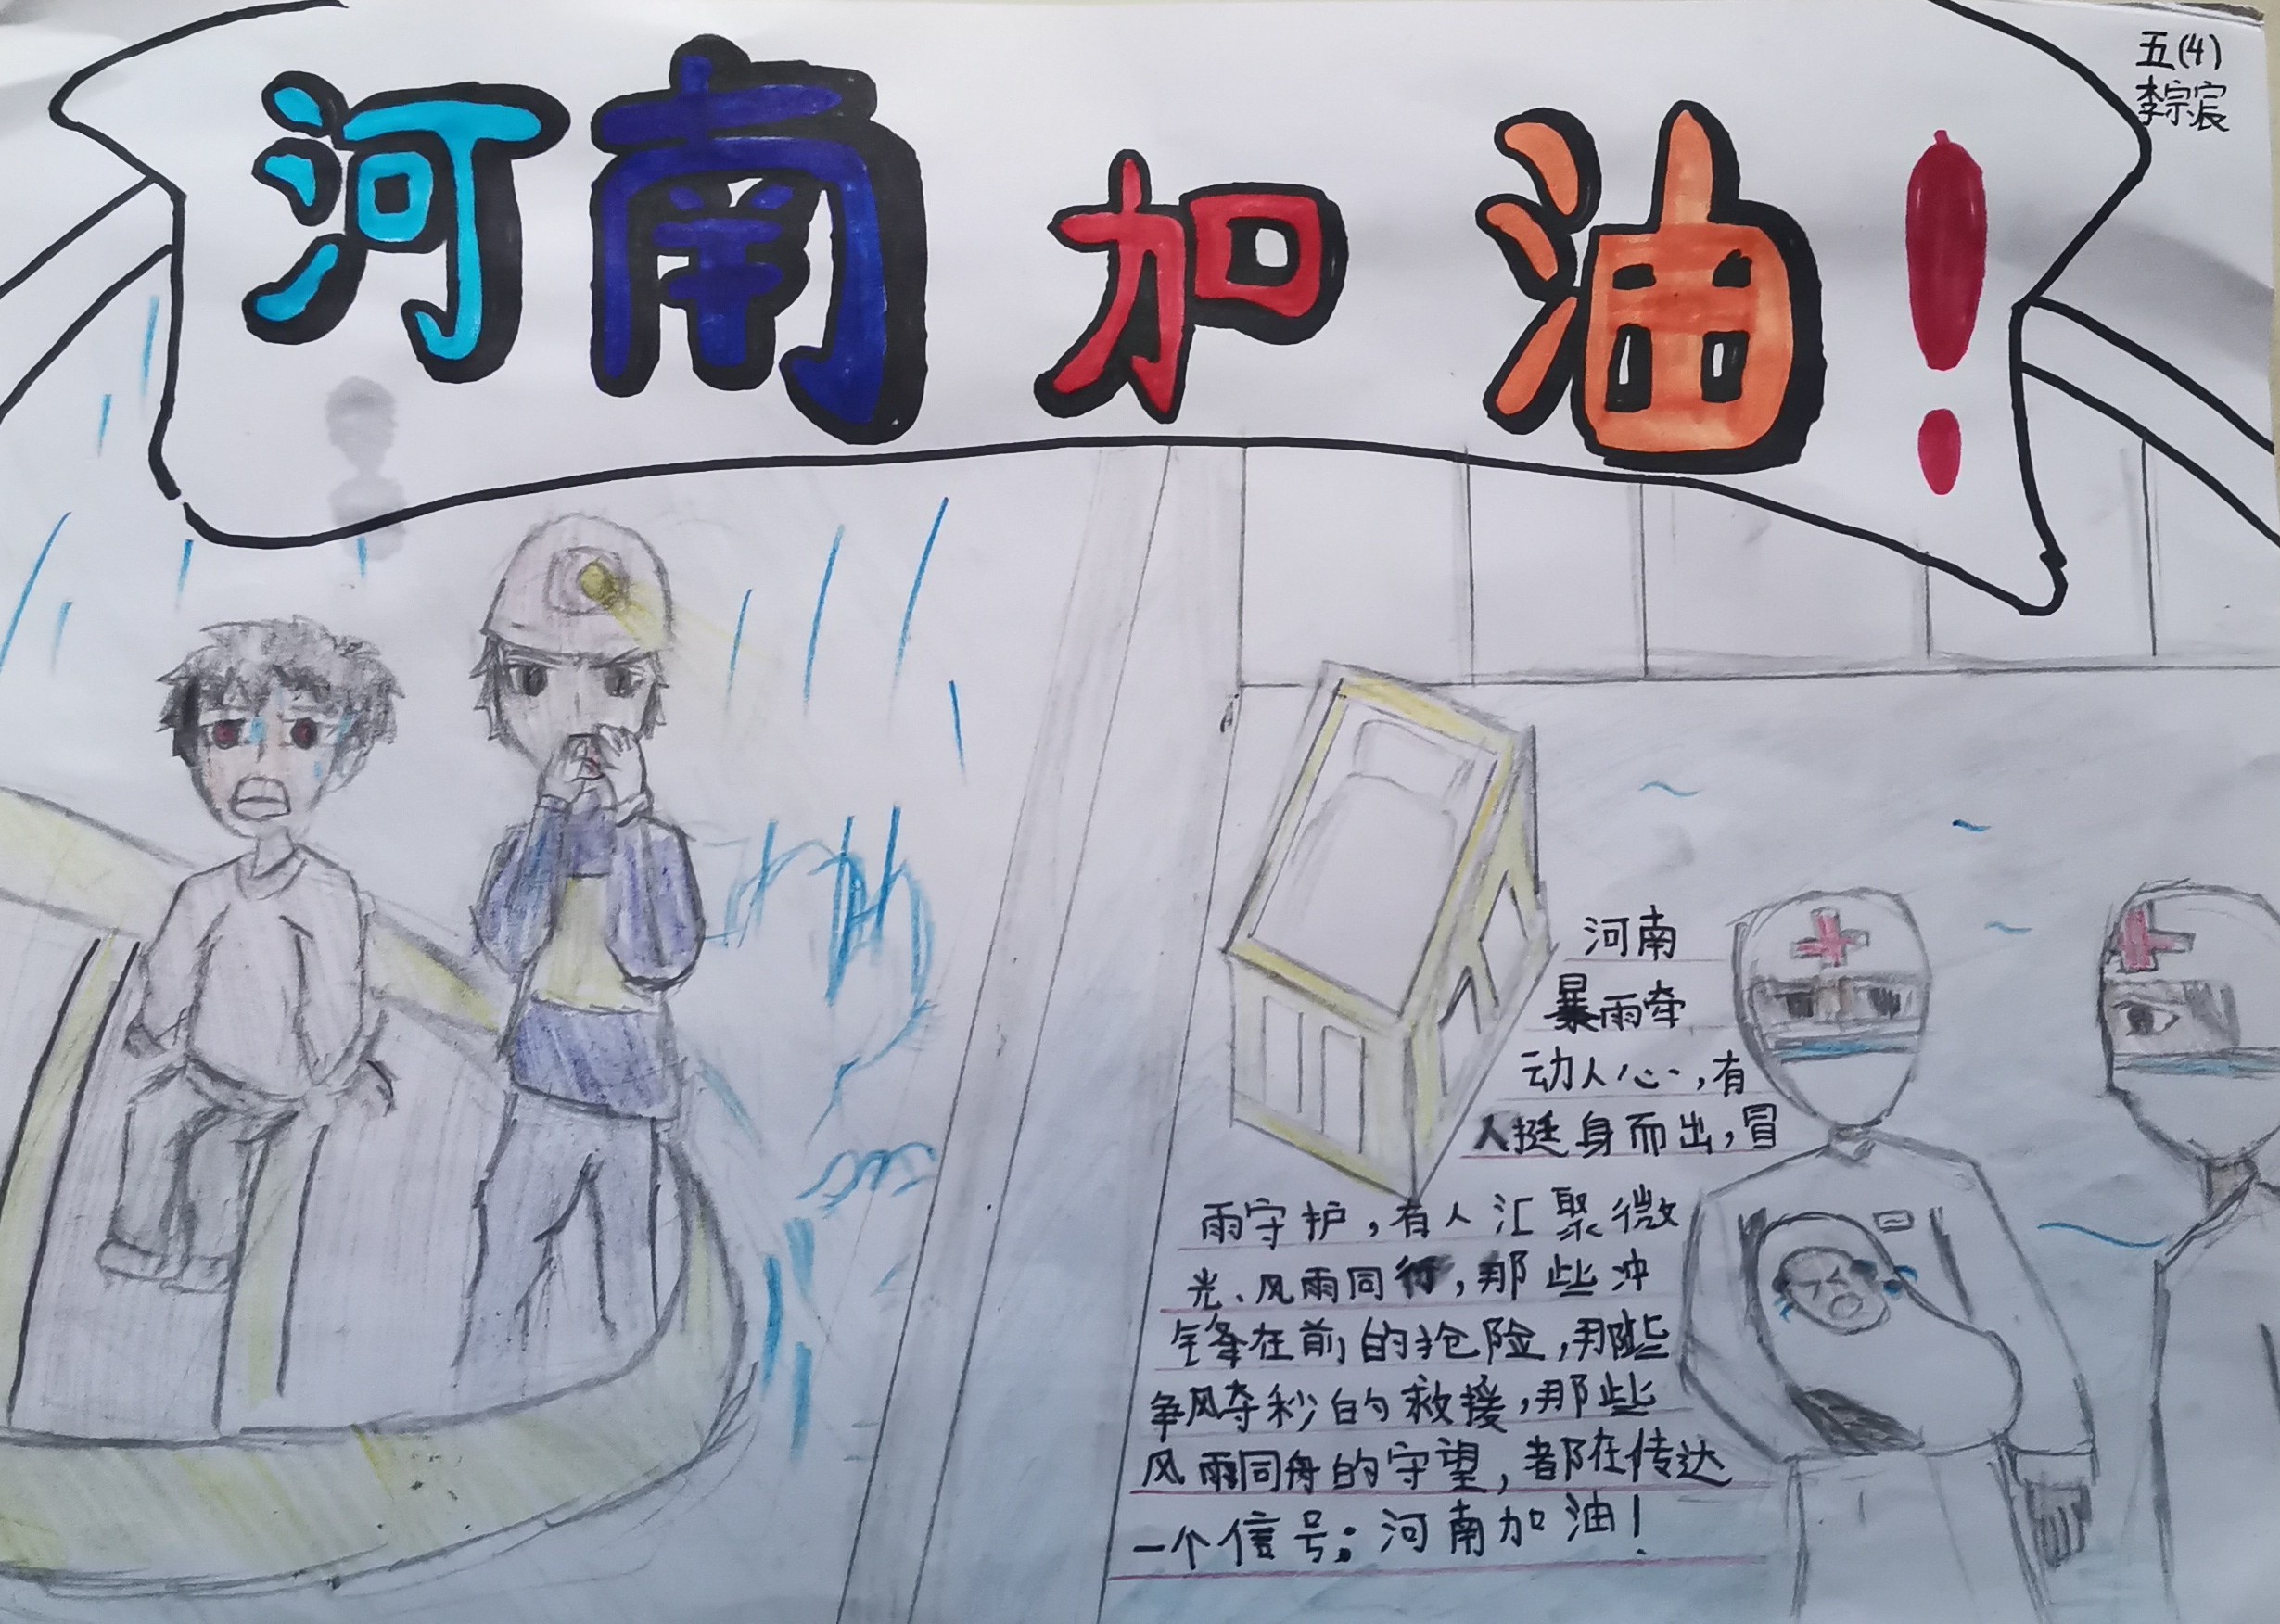 河南加油！
五(4)
李宗宸
河南
暴雨牵
动人心，有
人挺身而出，冒
雨守护，有人汇聚微
光、风雨同行，那些冲
锋在前的抢险，那些
争风夺秒的救援，那些
风雨同舟的守望，都在传达
一个信号：河南加油！